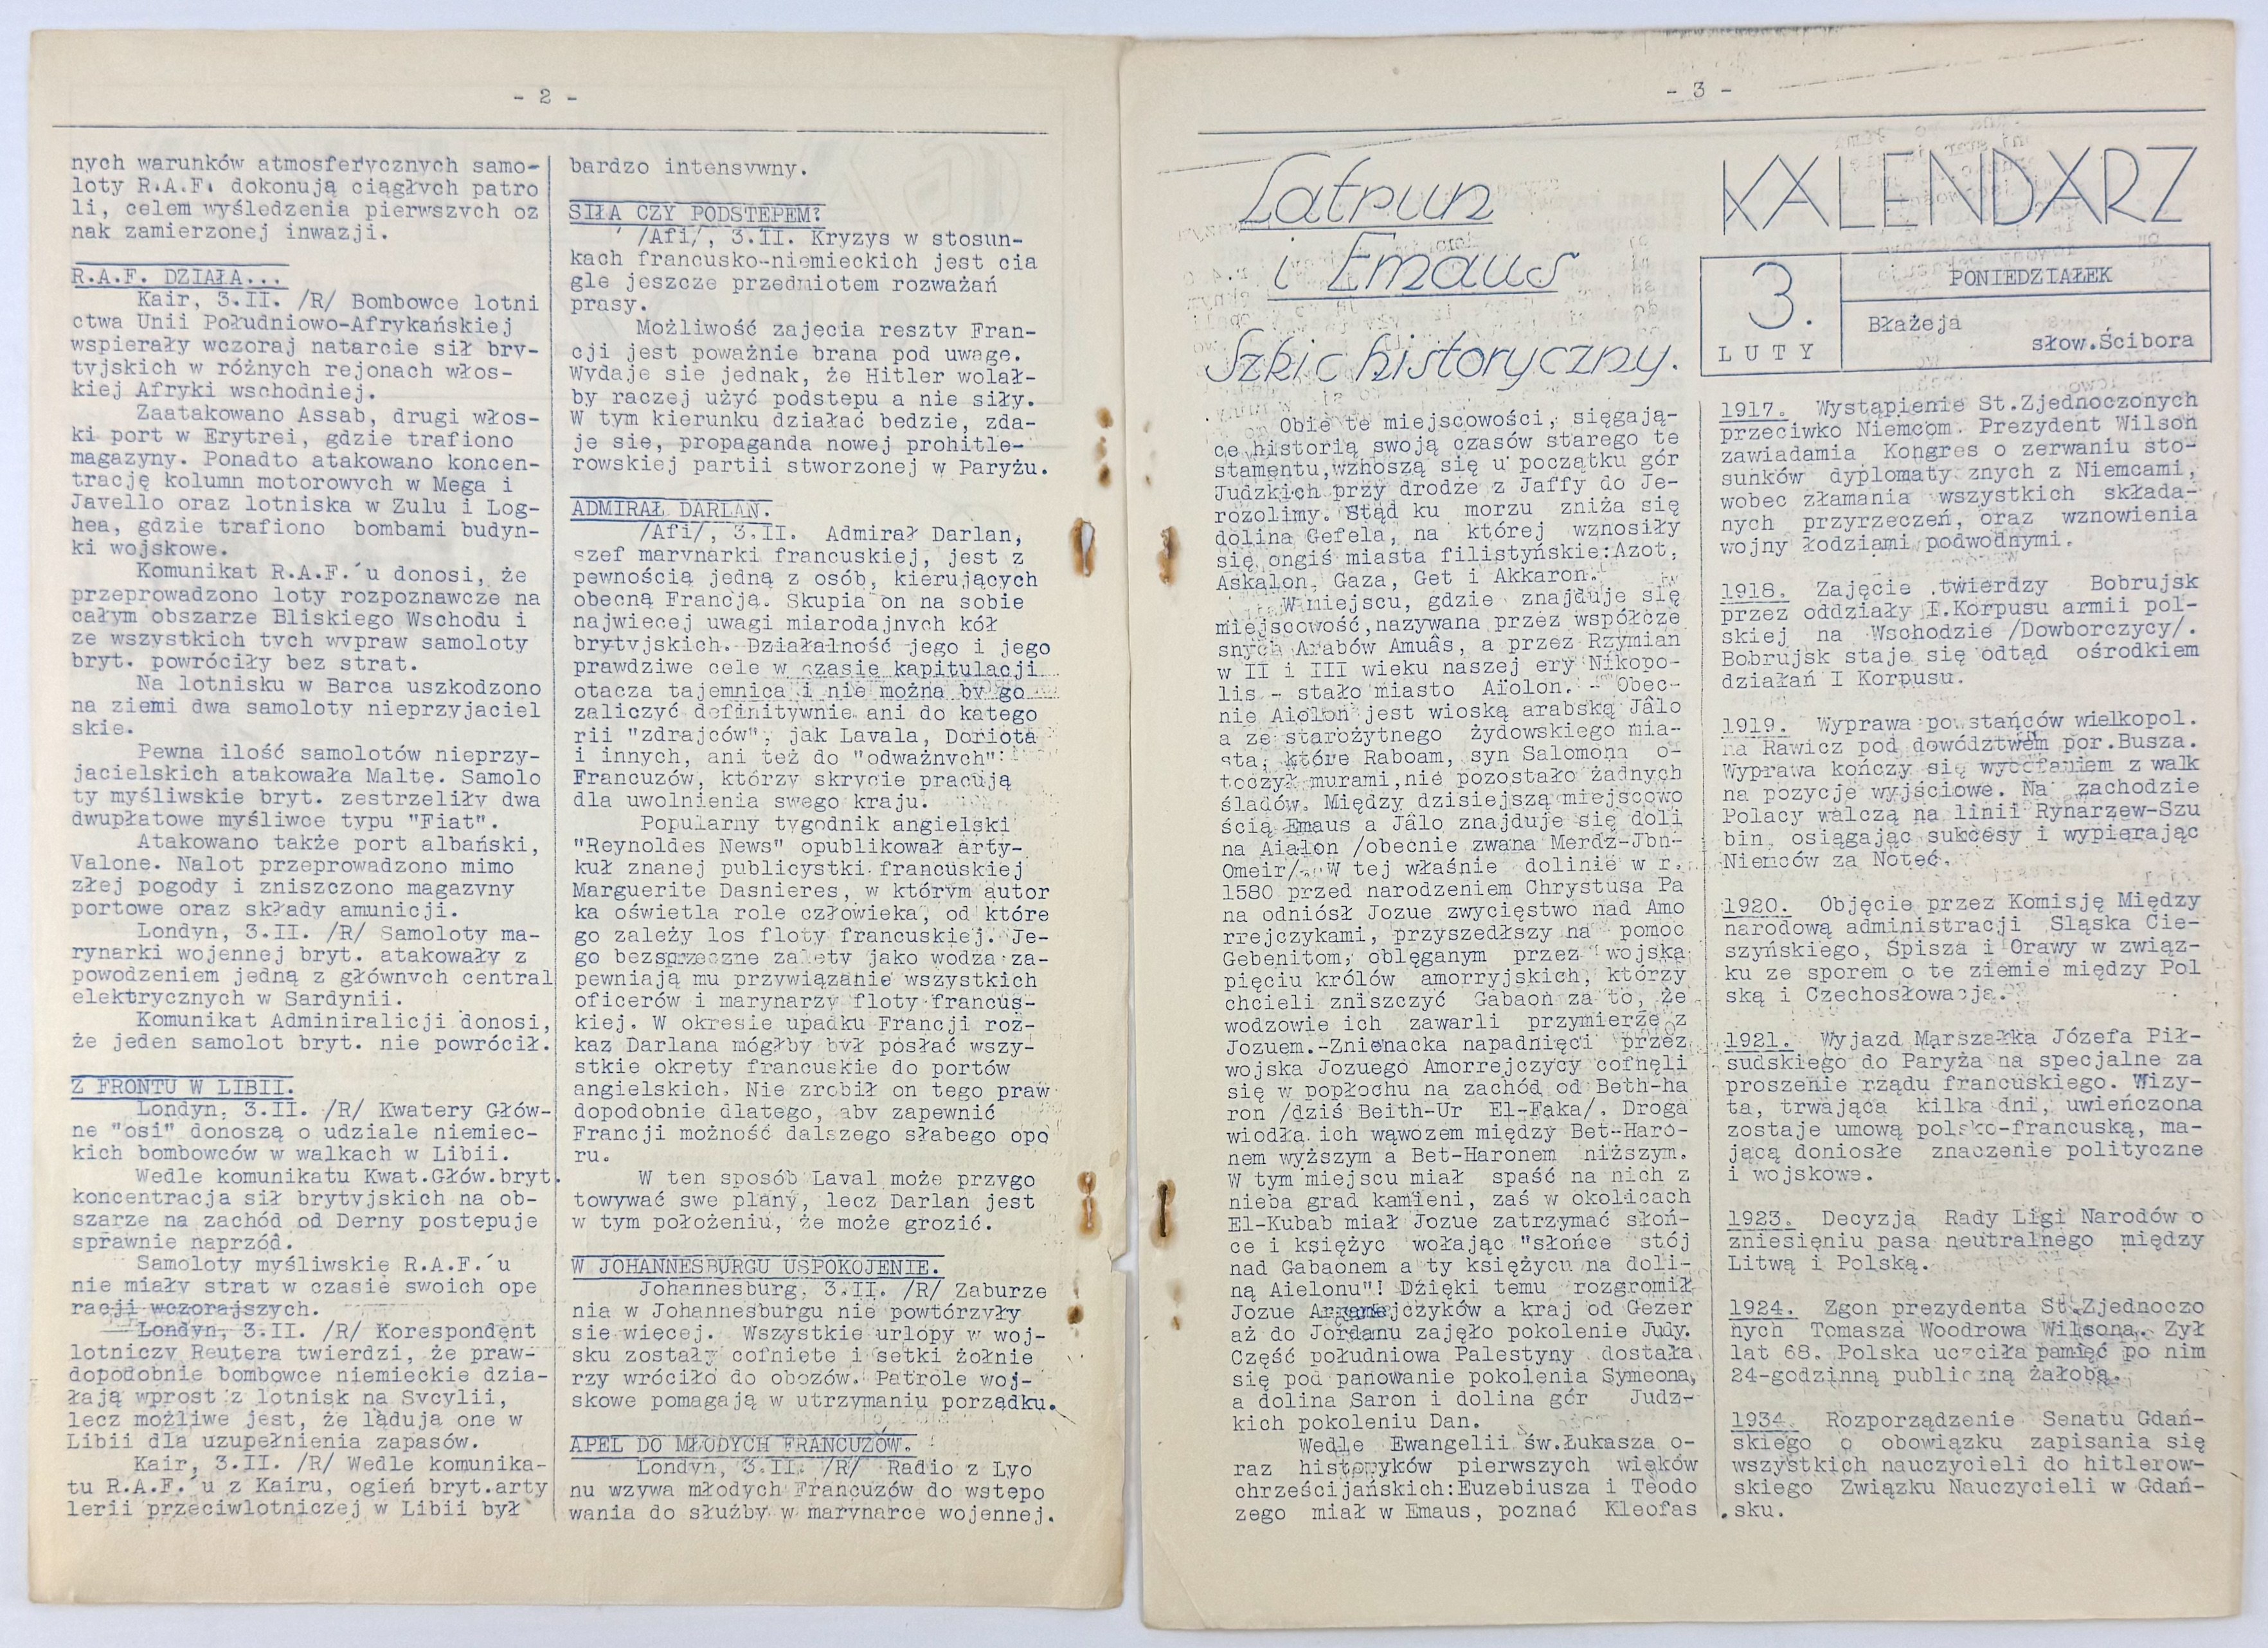 - 2 -
nych warunków atmosferycznych samo-
loty R.A.F. dokonują ciągłych patro
li, celem wyśledzenia pierwszych oz
nak zamierzonej inwazji.
R.A.F. DZIAŁA...
Kair, 3.II. /R/ Bombowce lotni
ctwa Unii Południowo-Afrykańskiej
wspierały wczoraj natarcie sił bry-
tyjskich w różnych rejonach włos-
kiej Afryki wschodniej.
Zaatakowano Assab, drugi włos-
ki port w Erytrei, gdzie trafiono
magazyny. Ponadto atakowano koncen-
trację kolumn motorowych w Mega i
Javello oraz lotniska w Zulu i Log-
hea, gdzie trafiono bombami budyn-
ki wojskowe.
Komunikat R.A.F.´u donosi, że
przeprowadzono loty rozpoznawcze na
całym obszarze Bliskiego Wschodu i
ze wszystkich tych wypraw samoloty
bryt. powróciły bez strat.
Na lotnisku w Barca uszkodzono
na ziemi dwa samoloty nieprzyjaciel
skie.
Pewna ilość samolotów nieprzy-
jacielskich atakowała Maltę. Samolo
ty myśliwskie bryt. zestrzeliły dwa
dwupłatowe myśliwce typu "Fiat".
Atakowano także port albański,
Valone. Nalot przeprowadzono mimo
złej pogody i zniszczono magazyny
portowe oraz składy amunicji.
Londyn, 3.II. /R/ Samoloty ma-
rynarki wojennej bryt. atakowały z
powodzeniem jedną z głównych central
elektrycznych w Sardynii.
Komunikat Adminiralicji donosi,
że jeden samolot bryt. nie powrócił.
Z FRONTU W LIBII.
Londyn, 3.II. /R/ Kwatery Głów-
ne "osi" donoszą o udziale niemiec-
kich bombowców w walkach w Libii.
Wedle komunikatu Kwat.Głów.bryt.
koncentracja sił brytyjskich na ob-
szarze na zachód od Derny postepuje
sprawnie naprzód.
Samoloty myśliwskie R.A.F.´u
nie miały strat w czasie swoich ope
racji wczorajszych.
Londyn, 3.II. /R/ Korespondent
lotniczy Reutera twierdzi, że praw-
dopodobnie bombowce niemieckie dzia-
łają wprost z lotnisk na Sycylii,
lecz możliwe jest, że lądują one w
Libii dla uzupełnienia zapasów.
Kair, 3.II. /R/ Wedle komunika-
tu R.A.F.´u z Kairu, ogień bryt.arty
lerii przeciwlotniczej w Libii był
bardzo intensywny.
SIŁA CZY PODSTEPEM?
/Afi/, 3.II. Kryzys w stosun-
kach francusko-niemieckich jest cia
gle jeszcze przedmiotem rozważań
prasy.
Możliwość zajecia reszty Fran-
cji jest poważnie brana pod uwage.
Wydaje sie jednak, że Hitler wolał-
by raczej użyć podstepu a nie siły.
W tym kierunku działać bedzie, zda-
je się, propaganda nowej prohitle-
rowskiej partii stworzonej w Paryżu.
ADMIRAŁ DARLAN.
/Afi/, 3.II. Admirał Darlan,
szef marynarki francuskiej, jest z
pewnością jedną z osób, kierujących
obecną Francją. Skupia on na sobie
najwiecej uwagi miarodajnych kół
brytyjskich. Działalność jego i jego
prawdziwe cele w czasie kapitulacji
otacza tajemnica i nie można by go
zaliczyć definitywnie ani do katego
rii "zdrajców", jak Lavala, Doriota
i innych, ani też do "odważnych"
Francuzów, którzy skrycie pracują
dla uwolnienia swego kraju.
Popularny tygodnik angielski
"Reynoldes News" opublikował arty-
kuł znanej publicystki francuskiej
Marguerite Dasnieres, w którym autor
ka oświetla role człowieka, od które
go zależy los floty francuskiej. Je-
go bezsprzeczne zalety jako wodza za-
pewniają mu przywiązanie wszystkich
oficerów i marynarzy floty francus-
kiej. W okresie upadku Francji roz-
kaz Darlana mógłby był posłać wszy-
stkie okrety francuskie do portów
angielskich. Nie zrobił on tego praw
dopodobnie dlatego, aby zapewnić
Francji możność dalszego słabego opo
ru.
W ten sposób Laval może przygo
towywać swe plany, lecz Darlan jest
w tym położeniu, że może grozić.
W JOHANNESBURGU USPOKOJENIE.
Johannesburg, 3.II. /R/ Zaburze
nia w Johannesburgu nie powtórzyły
sie więcej. Wszystkie urlopy w woj-
sku zostały cofniete i setki żołnie
rzy wróciło do obozów. Patrole woj-
skowe pomagają w utrzymaniu porządku.
APEL DO MŁODYCH FRANCUZÓW.
Londyn, 3.II. /R/ Radio z Lyo
nu wzywa młodych Francuzów do wstepo
wania do służby w marynarce wojennej.
- 3 -
Latrun
i Emaus
Szkic historyczny.
Obie te miejscowości, sięgają-
ce historią swoją czasów starego te
stamentu,wznoszą się u początku gór
Judzkich przy drodze z Jaffy do Je-
rozolimy. Stąd ku morzu zniża się
dolina Gefela, na której wznosiły
się ongiś miasta filistyńskie:Azot,
Askalon, Gaza, Get i Akkaron.
W miejscu, gdzie znajduje się
miejscowość,nazywana przez współcze
snych Arabów Amuâs, a przez Rzymian
w II i III wieku naszej ery Nikopo-
lis - stało miasto Aiolon. - Obec-
nie Aiolon jest wioską arabską Jâlo
a ze starożytnego żydowskiego mia-
sta, które Raboam, syn Salomona o-
toczył murami,nie pozostało żadnych
śladów. Między dzisiejszą miejscowo
ścią Emaus a Jâlo znajduje się doli
na Aialon /obecnie zwana Merdż-Jbn-
Omeir/. W tej właśnie dolinie w r.
1580 przed narodzeniem Chrystusa Pa
na odniósł Jozue zwycięstwo nad Amo
rrejczykami, przyszedłszy na pomoc
Gebenitom, oblęganym przez wojska
pięciu królów amorryjskich, którzy
chcieli zniszczyć Gabaon za to, że
wodzowie ich zawarli przymierze z
Jozuem.-Znienacka napadnięci przez
wojska Jozuego Amorrejczycy cofnęli
się w popłochu na zachód od Beth-ha
ron /dziś Beith-Ur El-Faka/. Droga
wiodła ich wąwozem między Bet-Haro-
nem wyższym a Bet-Haronem niższym.
W tym miejscu miał spaść na nich z
nieba grad kamieni, zaś w okolicach
El-Kubab miał Jozue zatrzymać słoń-
ce i księżyc wołając "słońce stój
nad Gabaonem a ty księżycu na doli-
ną Aielonu"! Dzięki temu rozgromił
Jozue a kraj od Gezer
aż do Jordanu zajęło pokolenie Judy.
Część południowa Palestyny dostała
się pod panowanie pokolenia Symeona,
a dolina Saron i dolina gór Judz-
kich pokoleniu Dan.
Wedle Ewangelii św.Łukasza o-
raz historyków pierwszych wieków
chrześcijańskich:Euzebiusza i Teodo
zego miał w Emaus, poznać Kleofas
KALENDARZ
3.
LUTY
PONIEDZIAŁEK
Błażeja
słow.Ścibora
1917. Wystąpienie St.Zjednoczonych
przeciwko Niemcom. Prezydent Wilson
zawiadamia Kongres o zerwaniu sto-
sunków dyplomaty znych z Niemcami,
wobec złamania wszystkich składa-
nych przyrzeczeń, oraz wznowienia
wojny łodziami podwodnymi.
1918. Zajęcie twierdzy Bobrujsk
przez oddziały I.Korpusu armii pol-
skiej na Wschodzie /Dowborczycy/.
Bobrujsk staje się odtąd ośrodkiem
działań I Korpusu.
1919. Wyprawa powstańców wielkopol.
na Rawicz pod dowództwem por.Busza.
Wyprawa kończy się wycofaniem z walk
na pozycje wyjściowe. Na zachodzie
Polacy walczą na linii Rynarzew-Szu
bin, osiągając sukcesy i wypierając
Niemców za Noteć.
1920. Objęcie przez Komisję Między
narodową administracji Śląska Cie-
szyńskiego, Spisza i Orawy w związ-
ku ze sporem o te ziemie między Pol
ską i Czechosłowacją.
1921. Wyjazd Marszałka Józefa Pił-
sudskiego do Paryża na specjalne za
proszenie rządu francuskiego. Wizy-
ta, trwająca kilka dni, uwieńczona
zostaje umową polsko-francuską, ma-
jącą doniosłe znaczenie polityczne
i wojskowe.
1923. Decyzją Rady Ligi Narodów o
zniesieniu pasa neutralnego między
Litwą i Polską.
1924. Zgon prezydenta St.Zjednoczo
nych Tomasza Woodrowa Wilsona. Żył
lat 68. Polska uczciła pamięć po nim
24-godzinną publiczną żałobą.
1934. Rozporządzenie Senatu Gdań-
skiego o obowiązku zapisania się
wszystkich nauczycieli do hitlerow-
skiego Związku Nauczycieli w Gdań-
sku.